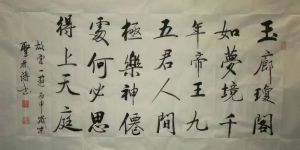 玉廊瓊閣
如夢境千
年帝王九
五君人間
極樂神僊
處何必思
得上天庭
故宮一遊 丙申歲末